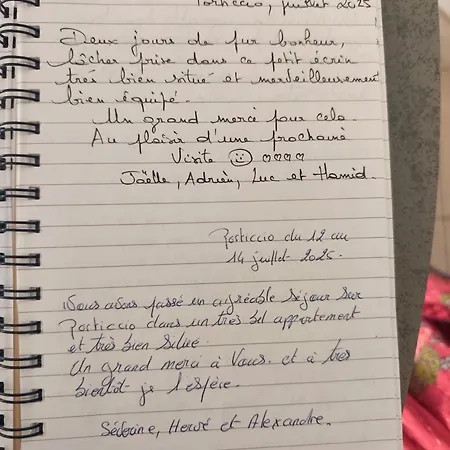 Porticcio, juillet 2025
Deux jours de pur bonheur,
lâcher prise dans ce petit écrin
très bien situé et merveilleusement
bien équipé.
Un grand merci pour cela.
Au plaisir d'une prochaine
Visite ☺ ♡♡♡♡
Joëlle, Adrien, Luc et Hamid.
Porticcio du 12 au
14 juillet 2025.
Nous avons passé un agréable séjour sur
Porticcio dans un très bel appartement
et très bien situé.
Un grand merci à Vous et à très
bientôt je l'espère.
Séverine, Hervé et Alexandre.